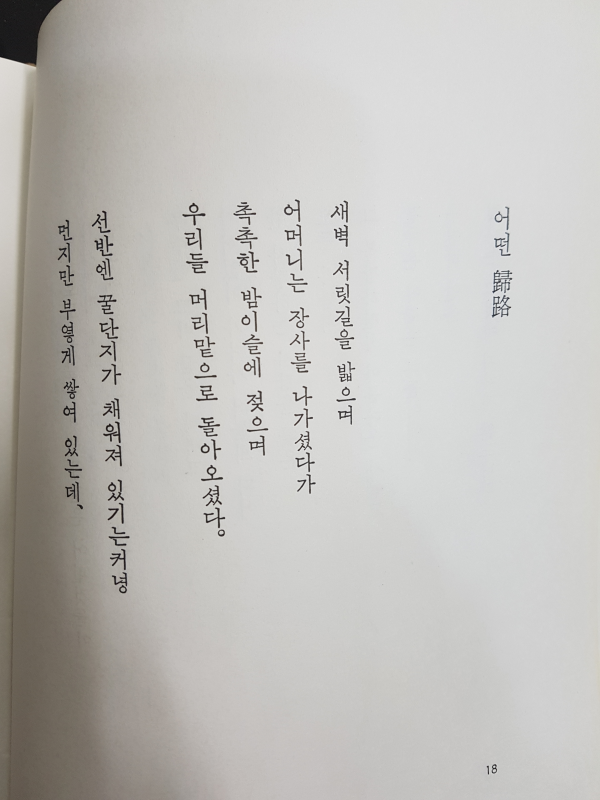 어떤 歸路
새벽 서릿길을 밟으며
어머니는 장사를 나가셨다가
촉촉한 밤이슬에 젖으며
우리들 머리맡으로 돌아오셨다。
선반엔 꿀단지가 채워져 있기는커녕
먼지만 부옇게 쌓여 있는데、
18